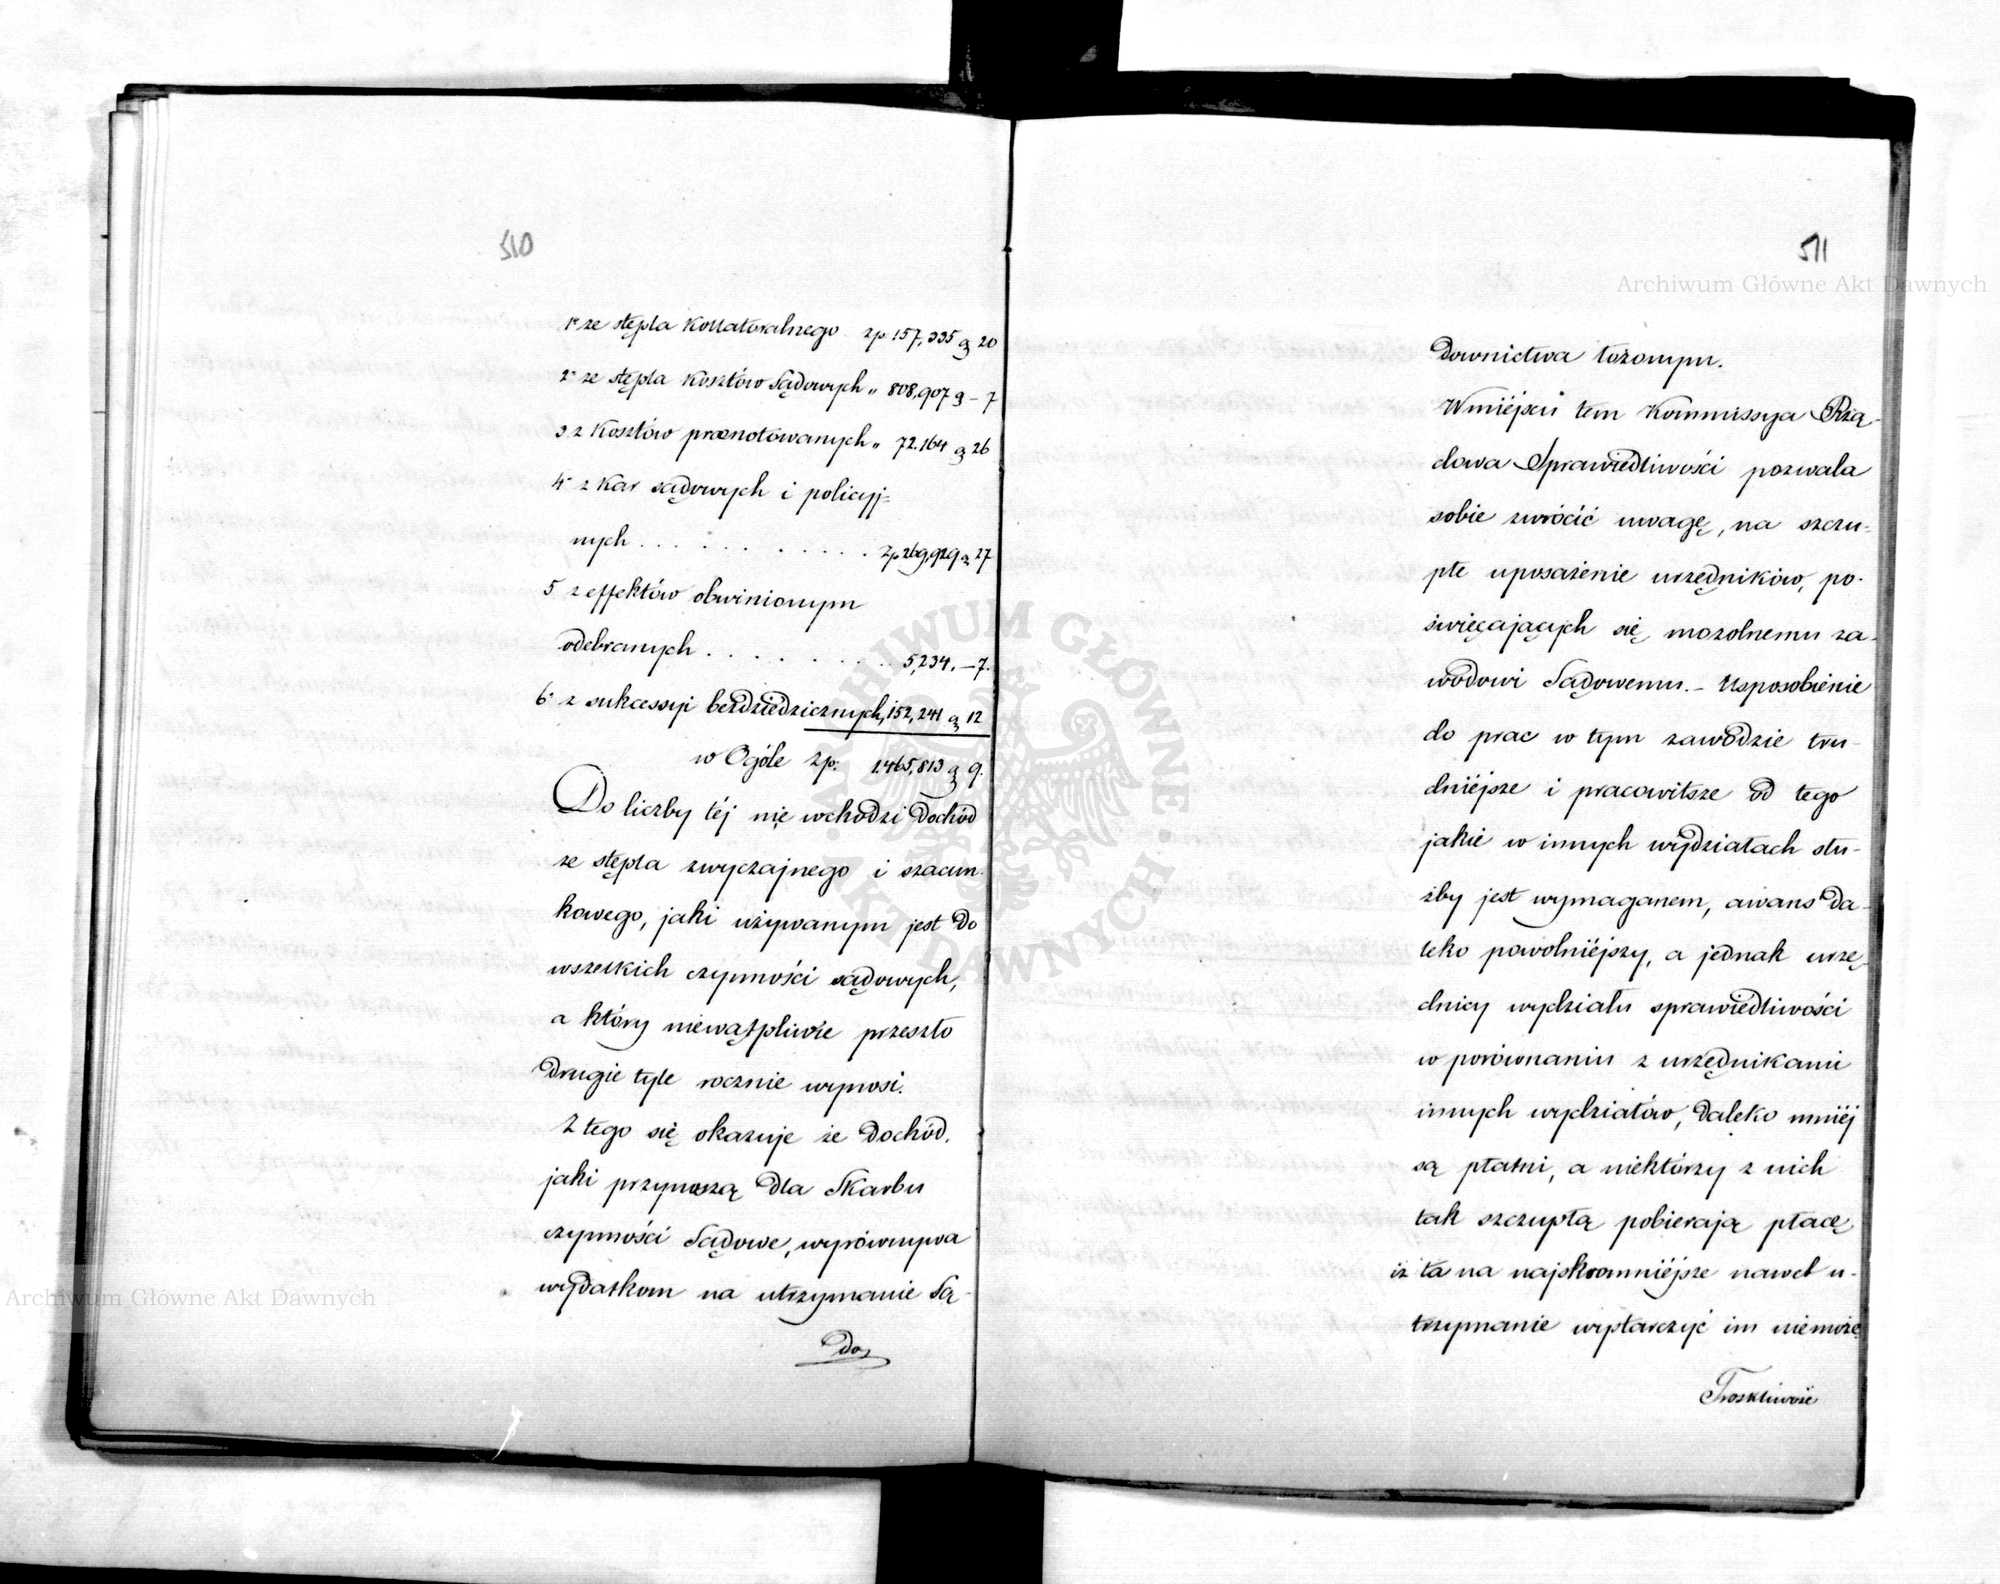 510
1º ze stępla Kollateralnego zp. 157,335 g 20
2º ze stępla Kosztów Sądowych „ 808,907 g – 7
3 z Kosztów prænotowanych „ 72.164 g 26
4º z Kar sądowych i policyj=
nych . . . . . . . . . . . zp 269,929 g 27
5 z effektów obwinionym
odebranych . . . . . . . . . 5,234. – 7.
6º z sukcessyi bezdziedzicznych, 152,241 g 12
w Ogóle zp. 1.465,813 g 9.
Do liczby téj nie wchodzi Dochód
ze stępla zwyczajnego i szacun-
kowego, jaki używanym jest Do
wszelkich czynności sądowych,
a który niewątpliwie przeszło
Drugie tyle rocznie wynosi.
Z tego się okazuje że Dochód.
jaki przynoszą Dla Skarbu
czynności Sądowe, wyrównywa
wydatkom na utrzymanie Są-
Do,
511
Downictwa łożonym.
W miéjscu tem Kommissya Rzą-
dowa Sprawiedliwości pozwala
sobie zwrócić uwagę, na szczu-
płe uposażenie urzędników, po-
święcających się mozolnemu za-
wodowi Sądowemu. – Usposobienie
do prac w tym zawodzie tru-
dniéjsze i pracowitsze od tego
jakie w innych wydziałach słu-
żby jest wymaganem, awans Da-
leko powolniéjszy, a jednak urzę-
dnicy wydziału sprawiedliwości
w porównaniu z urzędnikami
innych wydziałów, Daleko mniéj
są płatni, a niektórzy z nich
tak szczupłą pobierają płacę
iż ta na najskromniéjsze nawet u-
trzymanie wystarczyć im niemoże
Troskliwie
Archiwum Główne Akt Dawnych
Archiwum Główne Akt Dawnych
ARCHIWUM GŁÓWNE AKT DAWNYCH